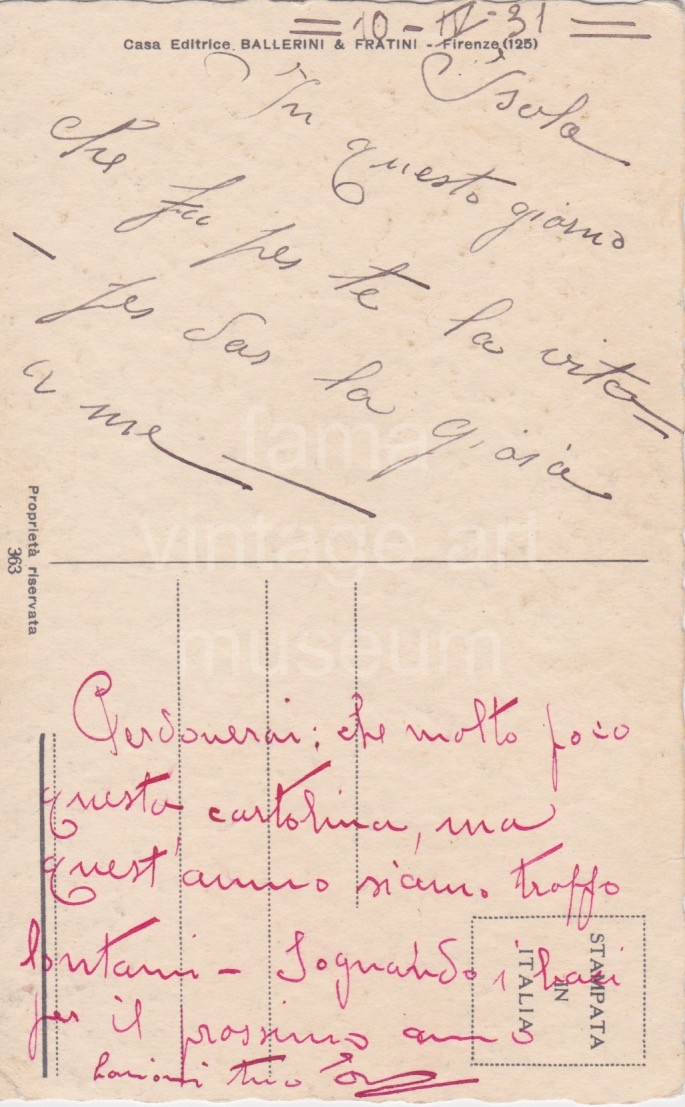 = 10 - IV - 31 =
Casa Editrice BALLERINI & FRATINI - Firenze (125)
Isola
In questo giorno
che fu per te la vita
per dar la gioia
a me
Proprietà riservata
363
fama
vintage art
museum
Perdonerai: che molto poco
questa cartolina, ma
quest'anno siamo troppo
lontani - Sognando i baci
per il prossimo anno
tuo
STAMPATA
IN
ITALIA